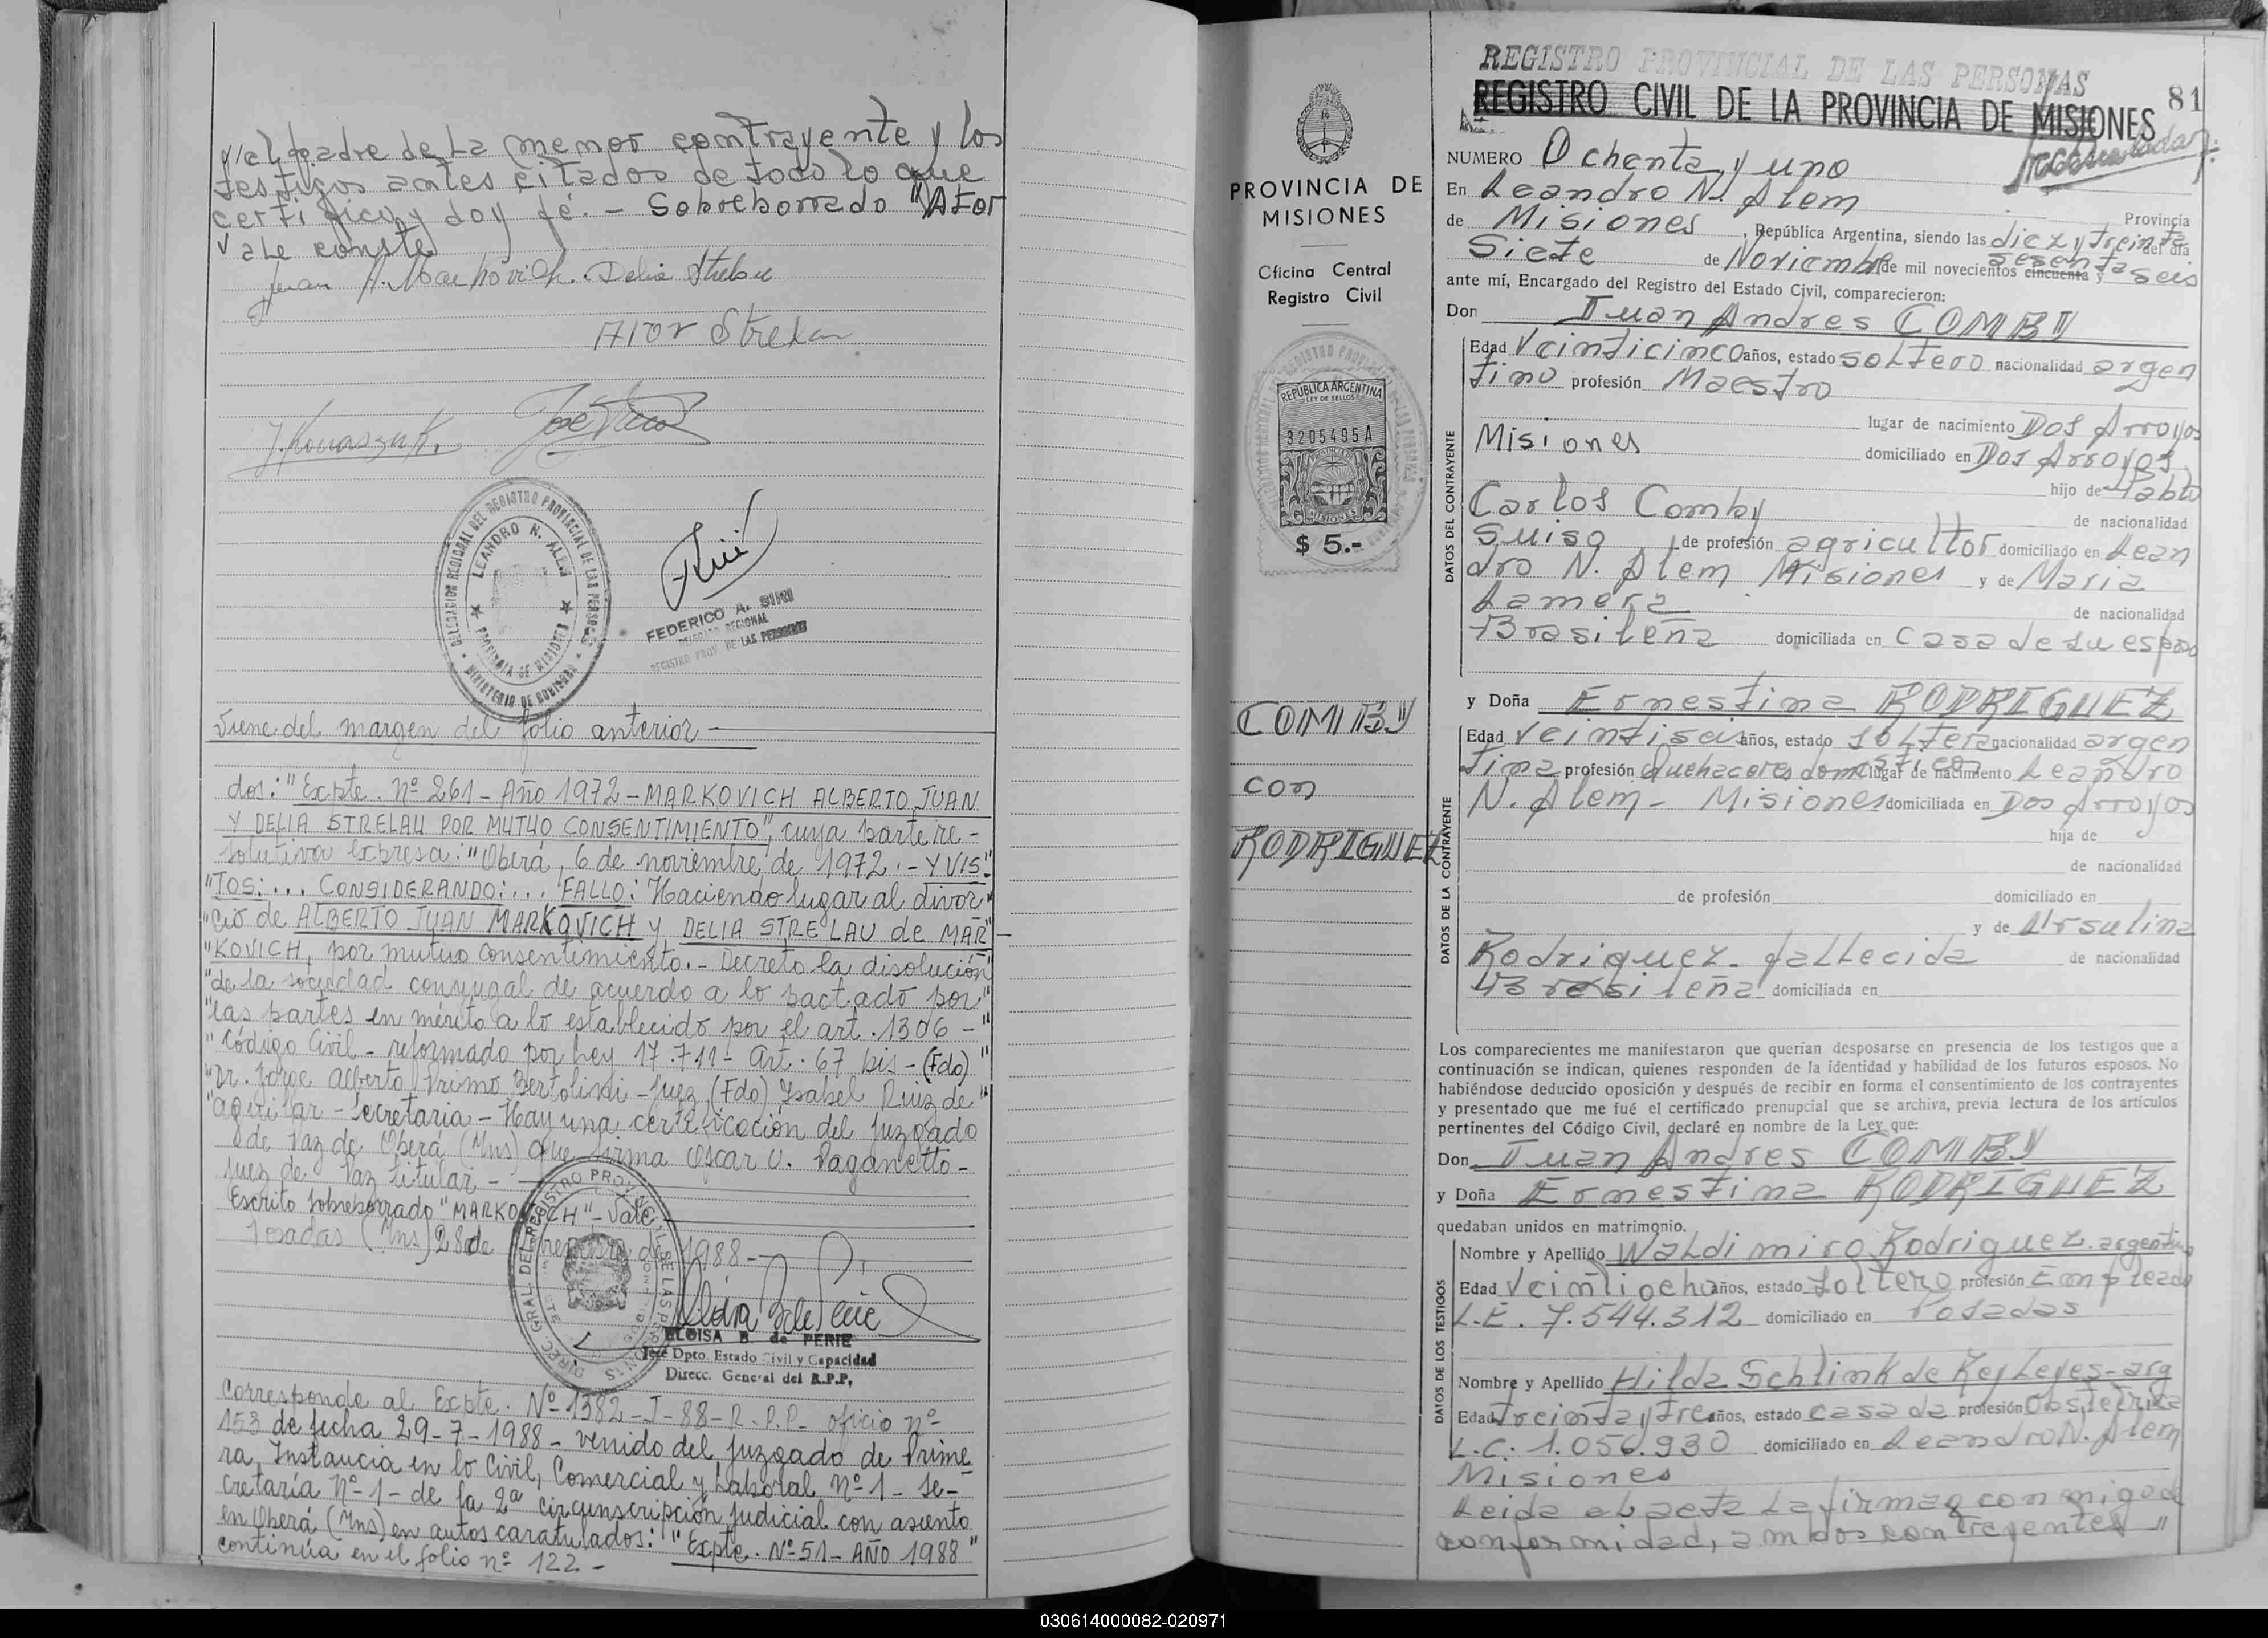 y el padre de la menor contrayente y los
testigos antes citados de todo lo que
certifico y doy fé. - Sobreborrado "Ator
vale conste
Juan A. Markovich. Delia Strelau
Ator Strelau
J. Kowaszuk.
DELEGACION REGIONAL DEL REGISTRO PROVINCIAL DE LAS PERSONAS
LEANDRO N. ALEM
PROVINCIA DE MISIONES
MINISTERIO DE GOBIERNO
FEDERICO A. SIRI
DELEGADO REGIONAL
REGISTRO PROV. DE LAS PERSONAS
Viene del margen del folio anterior -
dos: "Expte. Nº 261 - Año 1972 - MARKOVICH ALBERTO JUAN
Y DELIA STRELAU POR MUTUO CONSENTIMIENTO", cuya parte re-
solutiva expresa: "Oberá, 6 de noviembre de 1972. - Y VIS"
"TOS: ... CONSIDERANDO: ... FALLO: Haciendo lugar al divor"
"cio de ALBERTO JUAN MARKOVICH y DELIA STRELAU de MAR"
"KOVICH, por mutuo consentimiento. - Decreto la disolución
"de la sociedad conyugal de acuerdo a lo pactado por"
"las partes en mérito a lo establecido por el art. 1306 - "
"Código Civil - reformado por Ley 17.711 - Art. 67 bis - (Fdo) "
"Dr. Jorge Alberto Primo Bertolini - Juez (Fdo) Isabel Ruiz de"
"Aguilar - Secretaria - Hay una certificación del Juzgado
de Paz de Oberá (Mns) que firma Oscar U. Paganetto -
Juez de Paz titular -
Escrito sobreborrado "MARKOVICH" - Vale
Posadas (Mns) 28 de 1988 -
ELOISA B. de PERIE
Jefe Dpto. Estado Civil y Capacidad
Direcc. General del R.P.P.
Corresponde al Expte. Nº 1382 - J - 88 - R.P.P. oficio nº
153 de fecha 29-7-1988 - venido del Juzgado de Prime
ra Instancia en lo Civil, Comercial y Laboral Nº 1 - Se-
cretaría Nº 1 - de la 2ª circunscripción Judicial con asiento
en Oberá (Mns) en autos caratulados: "Expte. Nº 51 - AÑO 1988"
continúa en el folio nº 122 -
PROVINCIA DE
MISIONES
Oficina Central
Registro Civil
REPUBLICA ARGENTINA
LEY DE SELLOS
3205495A
MISIONES
$ 5.-
COMBY
con
RODRIGUEZ
REGISTRO PROVINCIAL DE LAS PERSONAS
REGISTRO CIVIL DE LA PROVINCIA DE MISIONES
81
NUMERO Ochenta y uno
En Leandro N. Alem
Provincia
de Misiones, República Argentina, siendo las diez y treinta del día
Siete de Noviembre de mil novecientos cincuenta y sesenta seis
ante mí, Encargado del Registro del Estado Civil, comparecieron:
Don Juan Andres COMBY
Edad Veinticinco años, estado soltero nacionalidad argen
tino profesión Maestro
lugar de nacimiento Dos Arroyos
Misiones domiciliado en Dos Arroyos
hijo de Pablo
Carlos Comby de nacionalidad
Suiso de profesión agricultor domiciliado en Lean
dro N. Alem Misiones y de Maria
Lamera de nacionalidad
Brasileña domiciliada en Casa de su esposo
DATOS DEL CONTRAYENTE
y Doña Ernestina RODRIGUEZ
Edad Veintiseis años, estado soltera nacionalidad argen
tina profesión Quehaceres domesticos lugar de nacimiento Leandro
N. Alem - Misiones domiciliada en Dos Arroyos
hija de
de nacionalidad
de profesión domiciliado en
y de Ursulina
Rodriguez - fallecida de nacionalidad
Brasileña domiciliada en
DATOS DE LA CONTRAYENTE
Los comparecientes me manifestaron que querían desposarse en presencia de los testigos que a
continuación se indican, quienes responden de la identidad y habilidad de los futuros esposos. No
habiéndose deducido oposición y después de recibir en forma el consentimiento de los contrayentes
y presentado que me fué el certificado prenupcial que se archiva, previa lectura de los artículos
pertinentes del Código Civil, declaré en nombre de la Ley que:
Don Juan Andres COMBY
y Doña Ernestina RODRIGUEZ
quedaban unidos en matrimonio.
Nombre y Apellido Waldimiro Rodriguez. argentino
Edad Veintiocho años, estado Soltero profesión Empleado
L.E. 7.544.312 domiciliado en Posadas
Nombre y Apellido Hilda Schlink de Keyleyes - arg
Edad Treinta y tres años, estado casada profesión Obstetrica
L.C. 1.056.930 domiciliado en Leandro N. Alem
Misiones
DATOS DE LOS TESTIGOS
Leida el acta la firman conmigo de
conformidad, ambos contrayentes
030614000082-020971